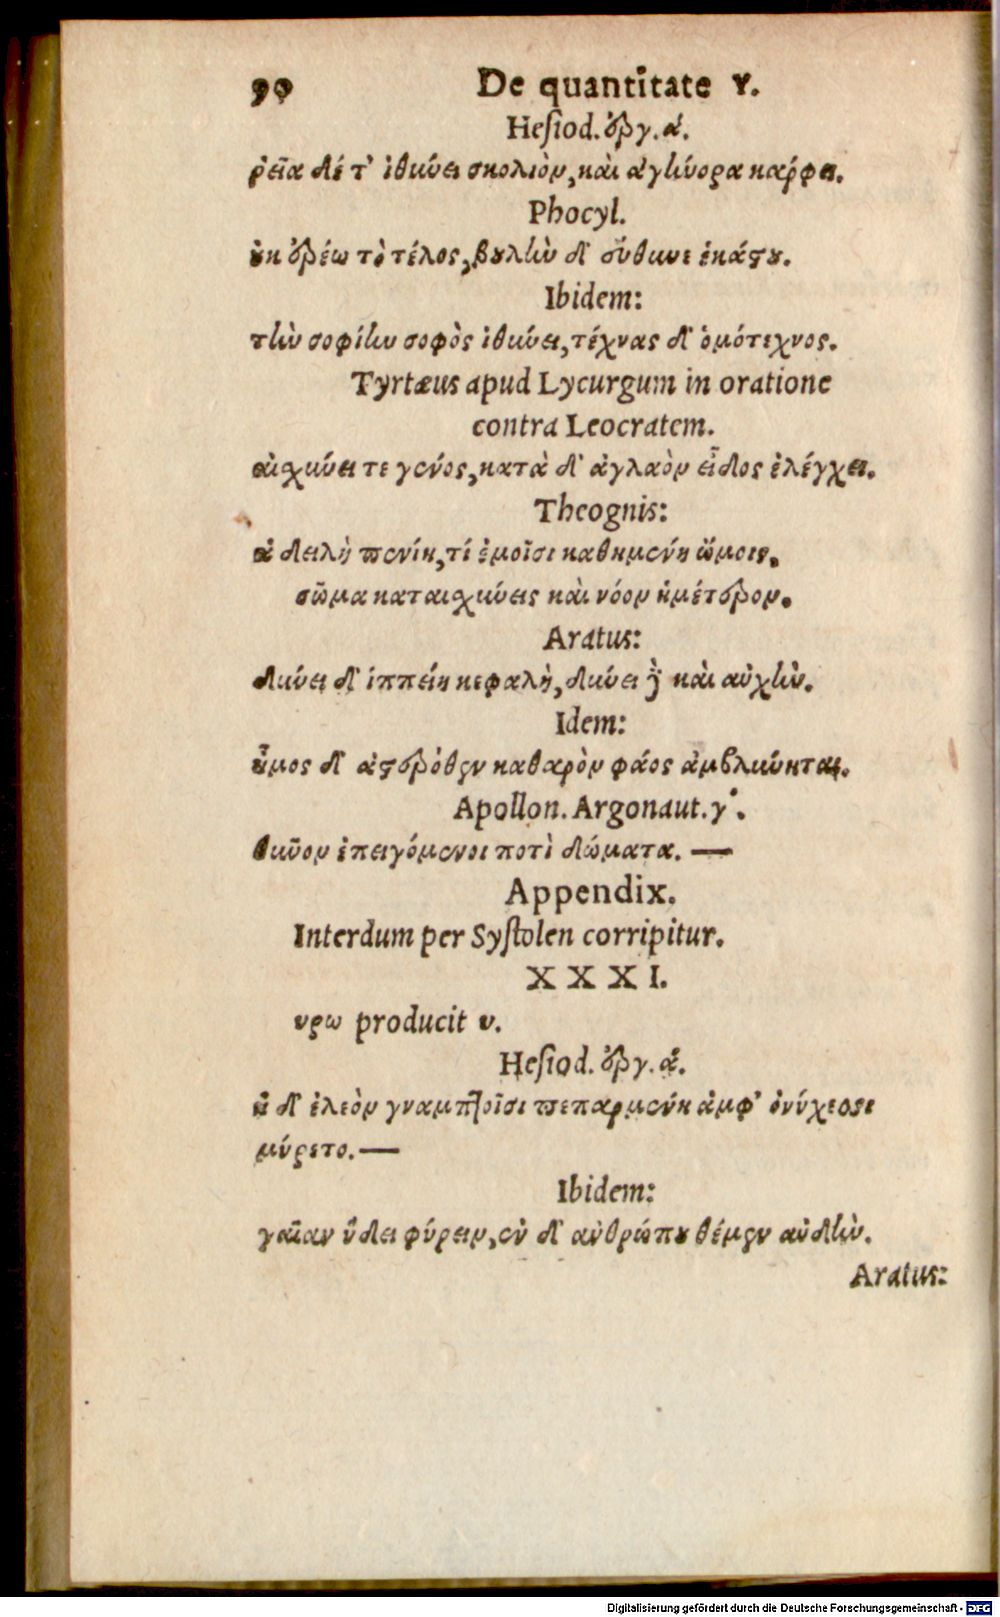 90 De quantitate Υ.
Hesiod. ἐργ. α.
ῥεῖα δέ τ' ἰθύνει σκολιὸν, καὶ ἀγήνορα κάρφει.
Phocyl.
οὐκ ἐρέω τὸ τέλος, βουλὴν δ' εὔθυνε ἑκάστου.
Ibidem:
τὴν σοφίην σοφὸς ἰθύνει, τέχνας δ' ὁμότεχνος.
Tyrtæus apud Lycurgum in oratione
contra Leocratem.
αἰσχύνει τε γένος, κατὰ δ' ἀγλαὸν εἶδος ἐλέγχει.
Theognis:
ἆ δειλὴ πενίη, τί ἐμοῖσι καθημένη ὤμοις,
σῶμα καταισχύνεις καὶ νόον ἡμέτερον.
Aratus:
δύνει δ' ἱππείη κεφαλὴ, δύνει δὲ καὶ αὐχὴν.
Idem:
ἦμος δ' ἀστερόθεν καθαρὸν φάος ἀμβλύνηται.
Apollon. Argonaut. γ.
θῦνον ἐπειγόμενοι ποτὶ δώματα. —
Appendix.
Interdum per Systolen corripitur.
XXXI.
υρω producit υ.
Hesiod. ἐργ. α.
ἡ δ' ἐλεὸν γναμπτοῖσι πεπαρμένη ἀμφ' ὀνύχεσσι
μύρετο. —
Ibidem:
γαῖαν ὕδει φύρειν, ἐν δ' ἀνθρώπου θέμεν αὐδὴν.
Aratus:
Digitalisierung gefördert durch die Deutsche Forschungsgemeinschaft - DFG